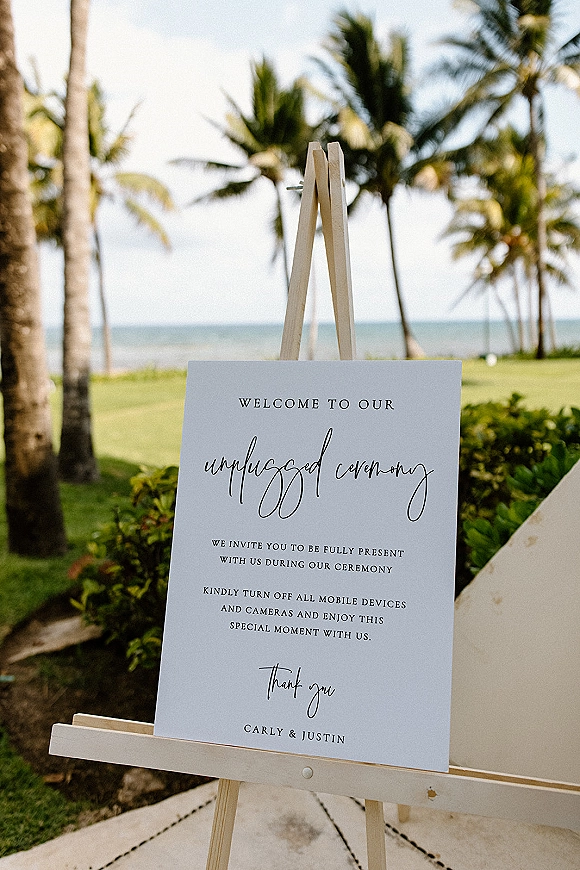 WELCOME TO OUR
unplugged ceremony
WE INVITE YOU TO BE FULLY PRESENT
WITH US DURING OUR CEREMONY
KINDLY TURN OFF ALL MOBILE DEVICES
AND CAMERAS AND ENJOY THIS
SPECIAL MOMENT WITH US.
Thank you
CARLY & JUSTIN